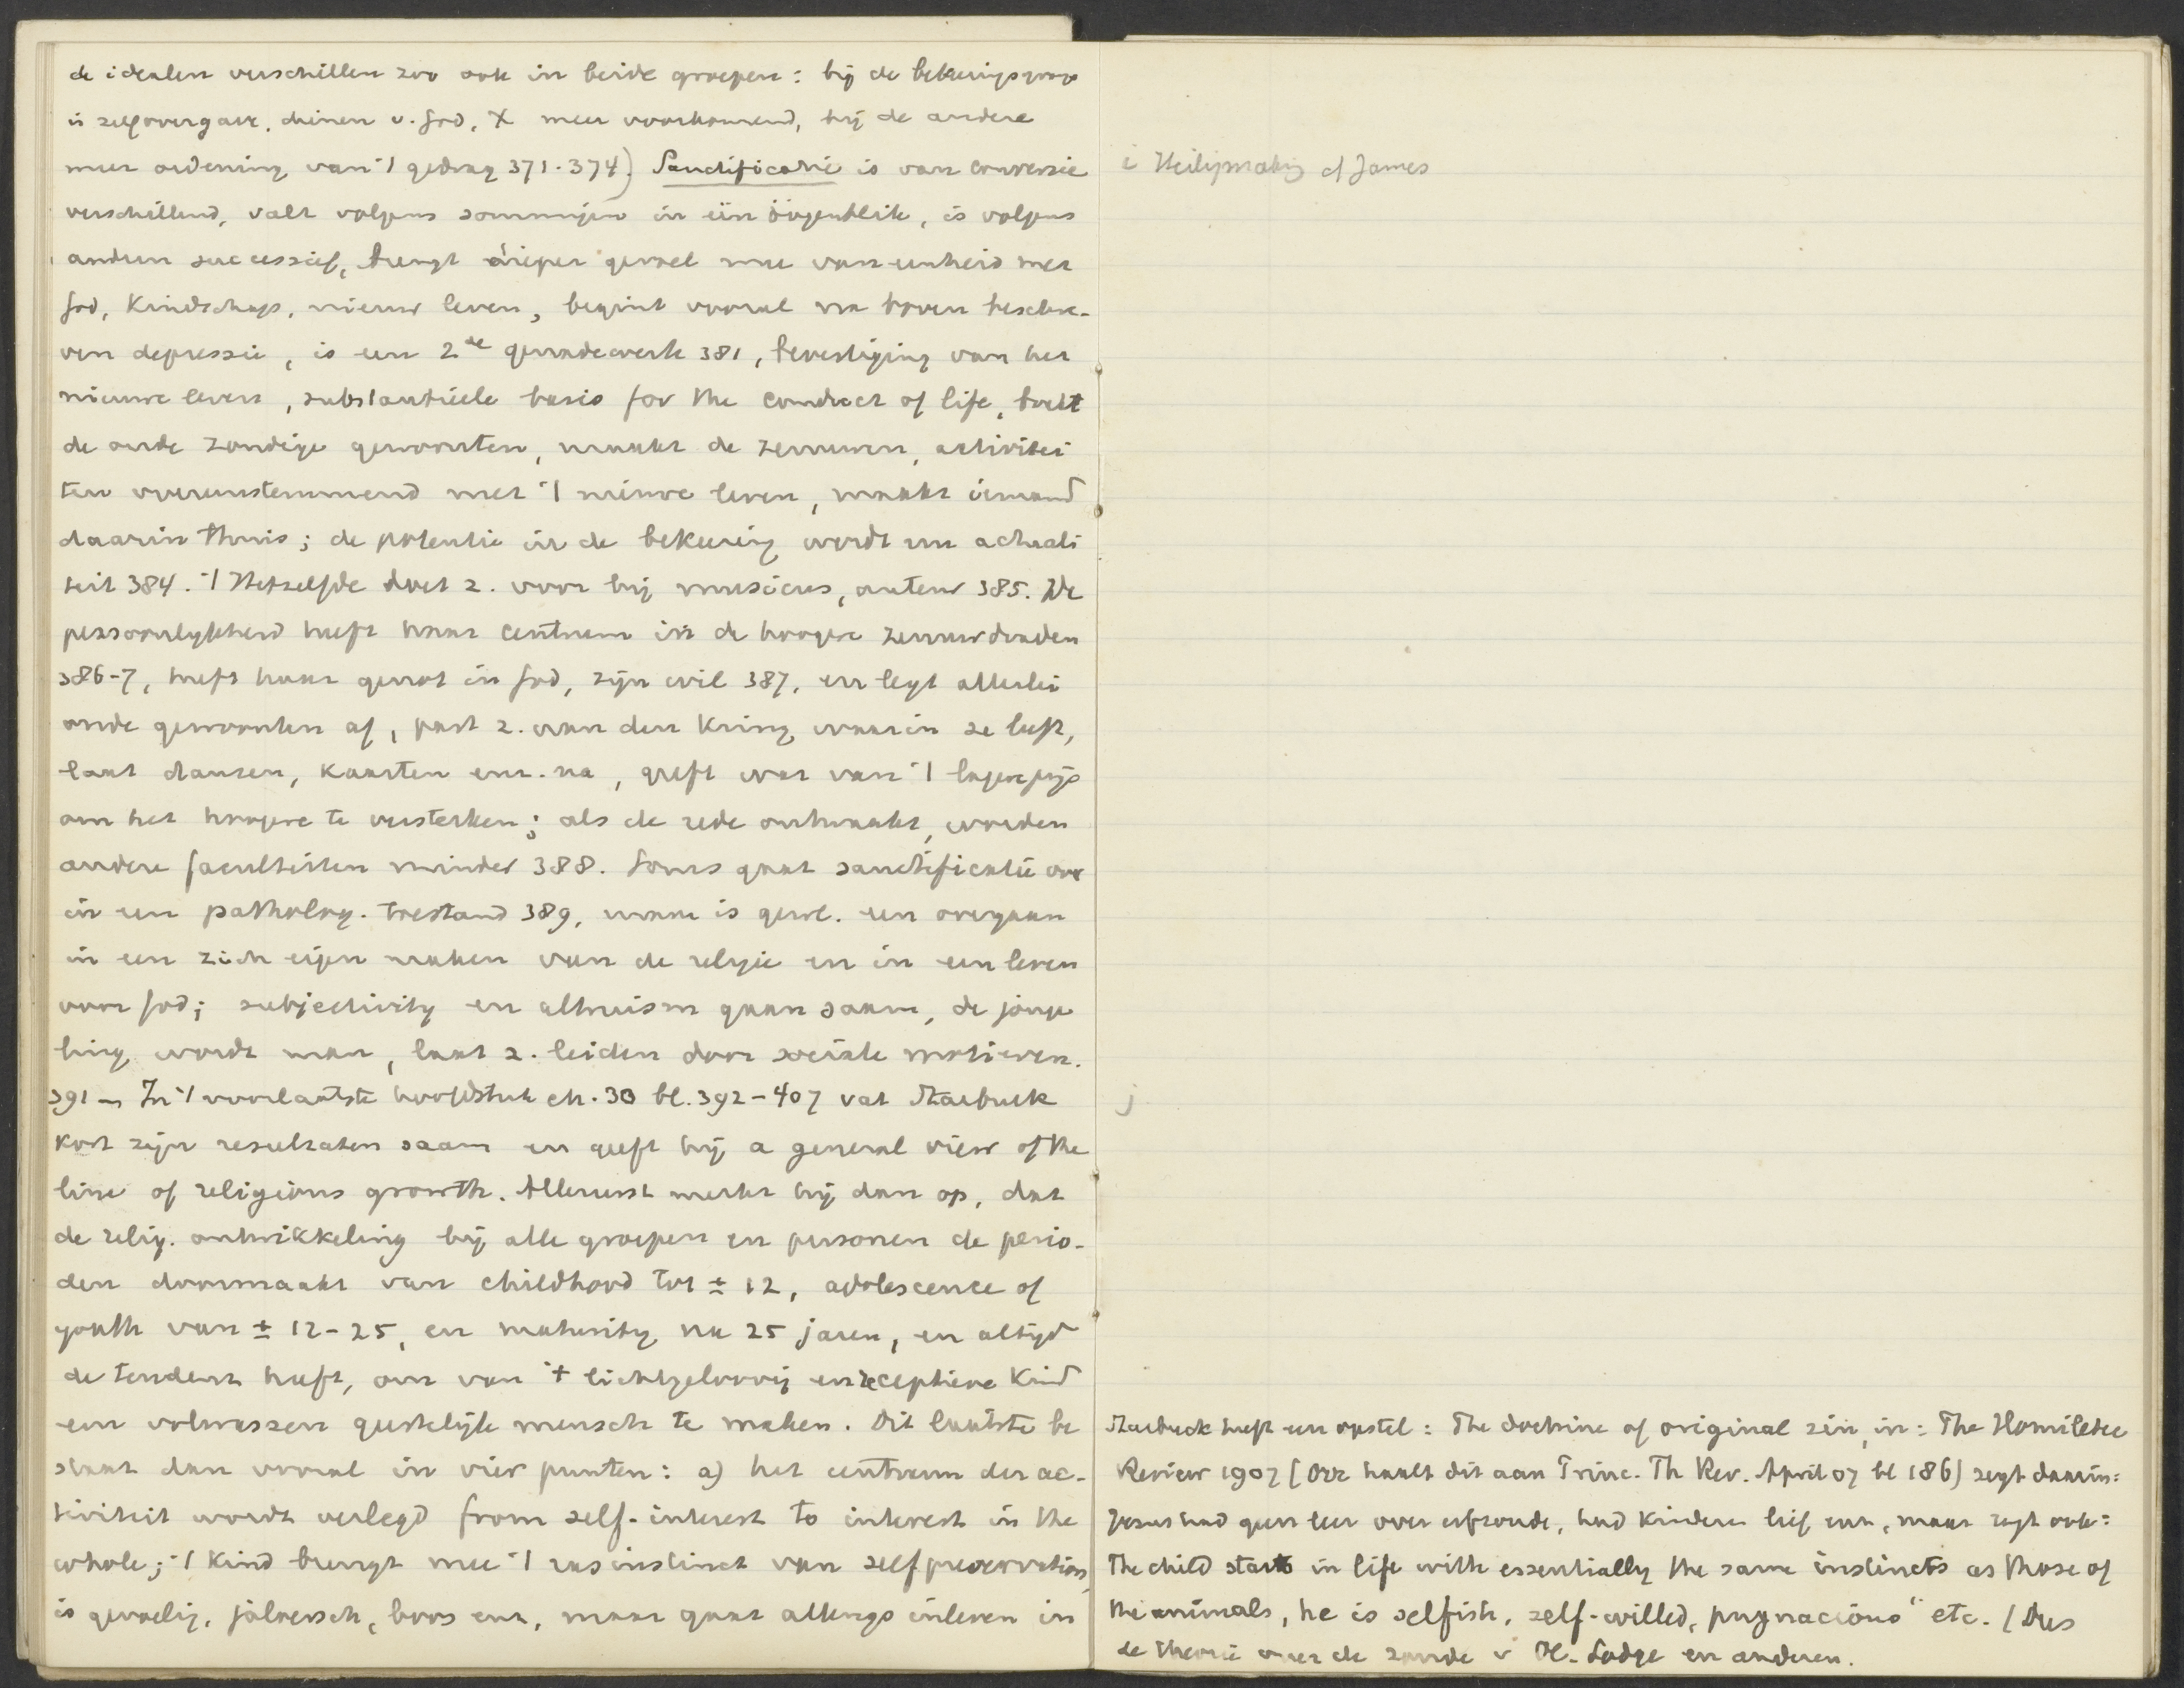 de idealen verschillen zoo ook in beide groepen: bij de bekeringsgroep
is zelfovergave, dienen v. God, X meer voorkomend, bij de andere
meer ordening van 't gedrag 371-374) Sanctificatie is van conversie
verschillend, valt volgens sommigen in één oogenblik, is volgens
andren successief, brengt dieper gevoel mee van eenheid met
God, Kindschap, nieuw leven, begint vooral na boven beschre-
ven depressie, is een 2de genadewerk 381, bevestiging van het
nieuwe leven, substantieele basis for the conduct of life, breekt
de oude zondige gewoonten, maakt de zenuwen, activitei
ten overeenstemmend met 't nieuwe leven, maakt iemand
daarin thuis; de potentie in de bekeering wordt nu actuali
teit 384. 't Hetzelfde doet z. voor bij musicus, auteur 385. De
persoonlykheid heeft haar centrum in de hoogere zenuwdraden
386-7, heeft haar genot in God, zijn wil 387, en legt allerlei
oude gewoonten af, past z. aan den Kring waarin ze leeft,
laat dansen, kaarten enz. na, geeft wat van 't lagere prijs
om het hoogere te versterken; als de rede ontwaakt, worden
andere faculteiten minder 388. Soms gaat sanctificatie over
in een patholog. toestand 389, maar is gewl. een overgaan
in een zich eigen maken van de religie en in een leven
voor God; subjectivity en altruism gaan saam, de jonge
ling wordt man, laat z. leiden door sociale motieven.
391 – In 't voorlaatste hoofdstuk ch. 30 bl. 392-407 vat Starbuck
kort zijn resultaten saam en geeft hij a general view of the
line of religious growth. Allereerst merkt hij dan op, dat
de relig. ontwikkeling bij alle groepen en personen de perio-
den doormaakt van childhood tot ± 12, adolescence of
youth van ± 12-25, en maturity na 25 jaren, en altijd
de tendens heeft, om van 't lichtgeloovig en receptieve Kind
een volwassen geestelijk mensch te maken. Dit laatste be
staat dan vooral in vier punten: a) het centrum der ac-
tiviteit wordt verlegd from self-interest to interest in the
whole; 't Kind brengt mee 't ras instinct van selfpreservation,
is gevoelig, jaloersch, boos enz, maar gaat allengs inleven in
i Heiligmaking cf James
j
Starbuck heeft een opstel: The doctrine of original sin, in: The Homiletic
Review 1907 (Orr haalt dit aan Princ. Th Rev. April 07 bl 186) zegt daarin:
Jezus had geen leer over erfzonde, had kinderen lief enz, maar zegt ook:
The child starts in life with essentially the same instincts as those of
the animals, he is selfish, self-willed, pugnacious" etc. (Dus
de theorie over de zonde v Ol. Lodge en anderen.